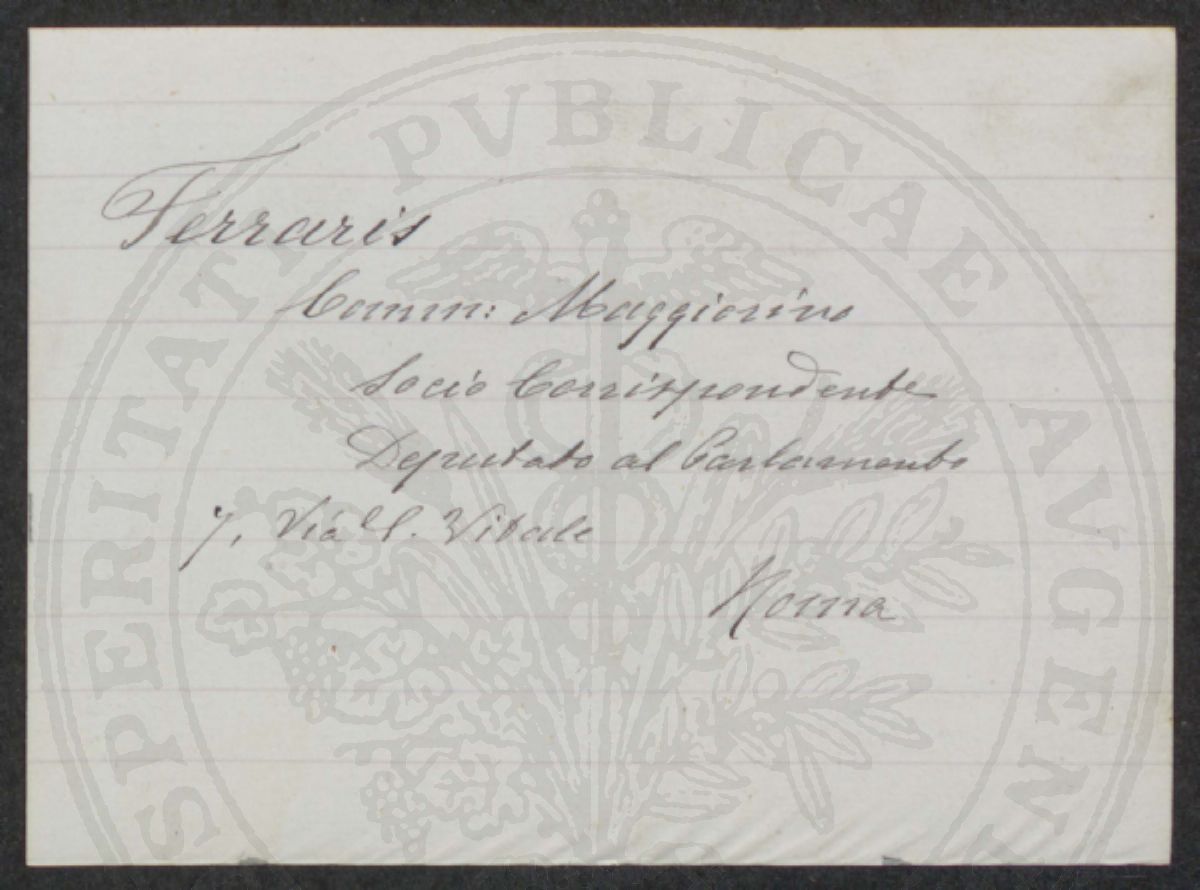 Ferraris
Comm: Maggiorino
Socio Corrispondente
Deputato al Parlamento
7, Via S. Vitale
Roma
PROSPERITATI PVBLICAE AVGEN